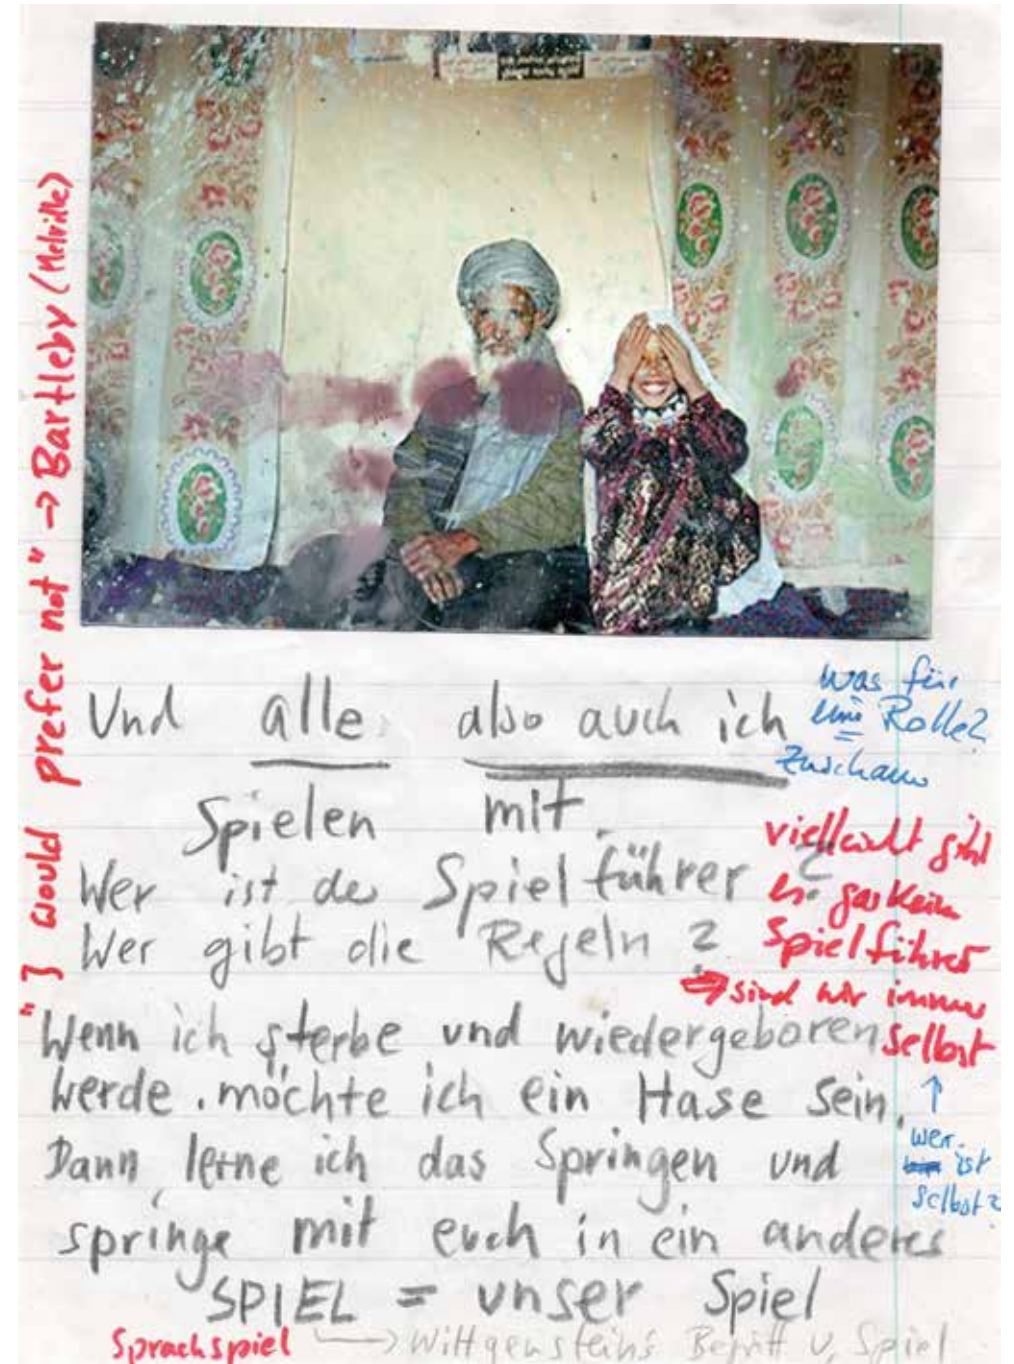 "I would prefer not" → Bartleby (Melville)
Und alle also auch ich
spielen mit.
Was für
eine Rolle?
Zuschauer
Wer ist der Spielführer?
Wer gibt die Regeln?
vielleicht gibt
es gar kein
Spielführer
⇒ sind wir immer
selbst
↑
wer
ist
selbst?
Wenn ich sterbe und wiedergeboren
werde. möchte ich ein Hase sein.
Dann lerne ich das Springen und
springe mit euch in ein anderes
SPIEL = unser Spiel
Sprachspiel → Wittgenstein's Begriff v. Spiel